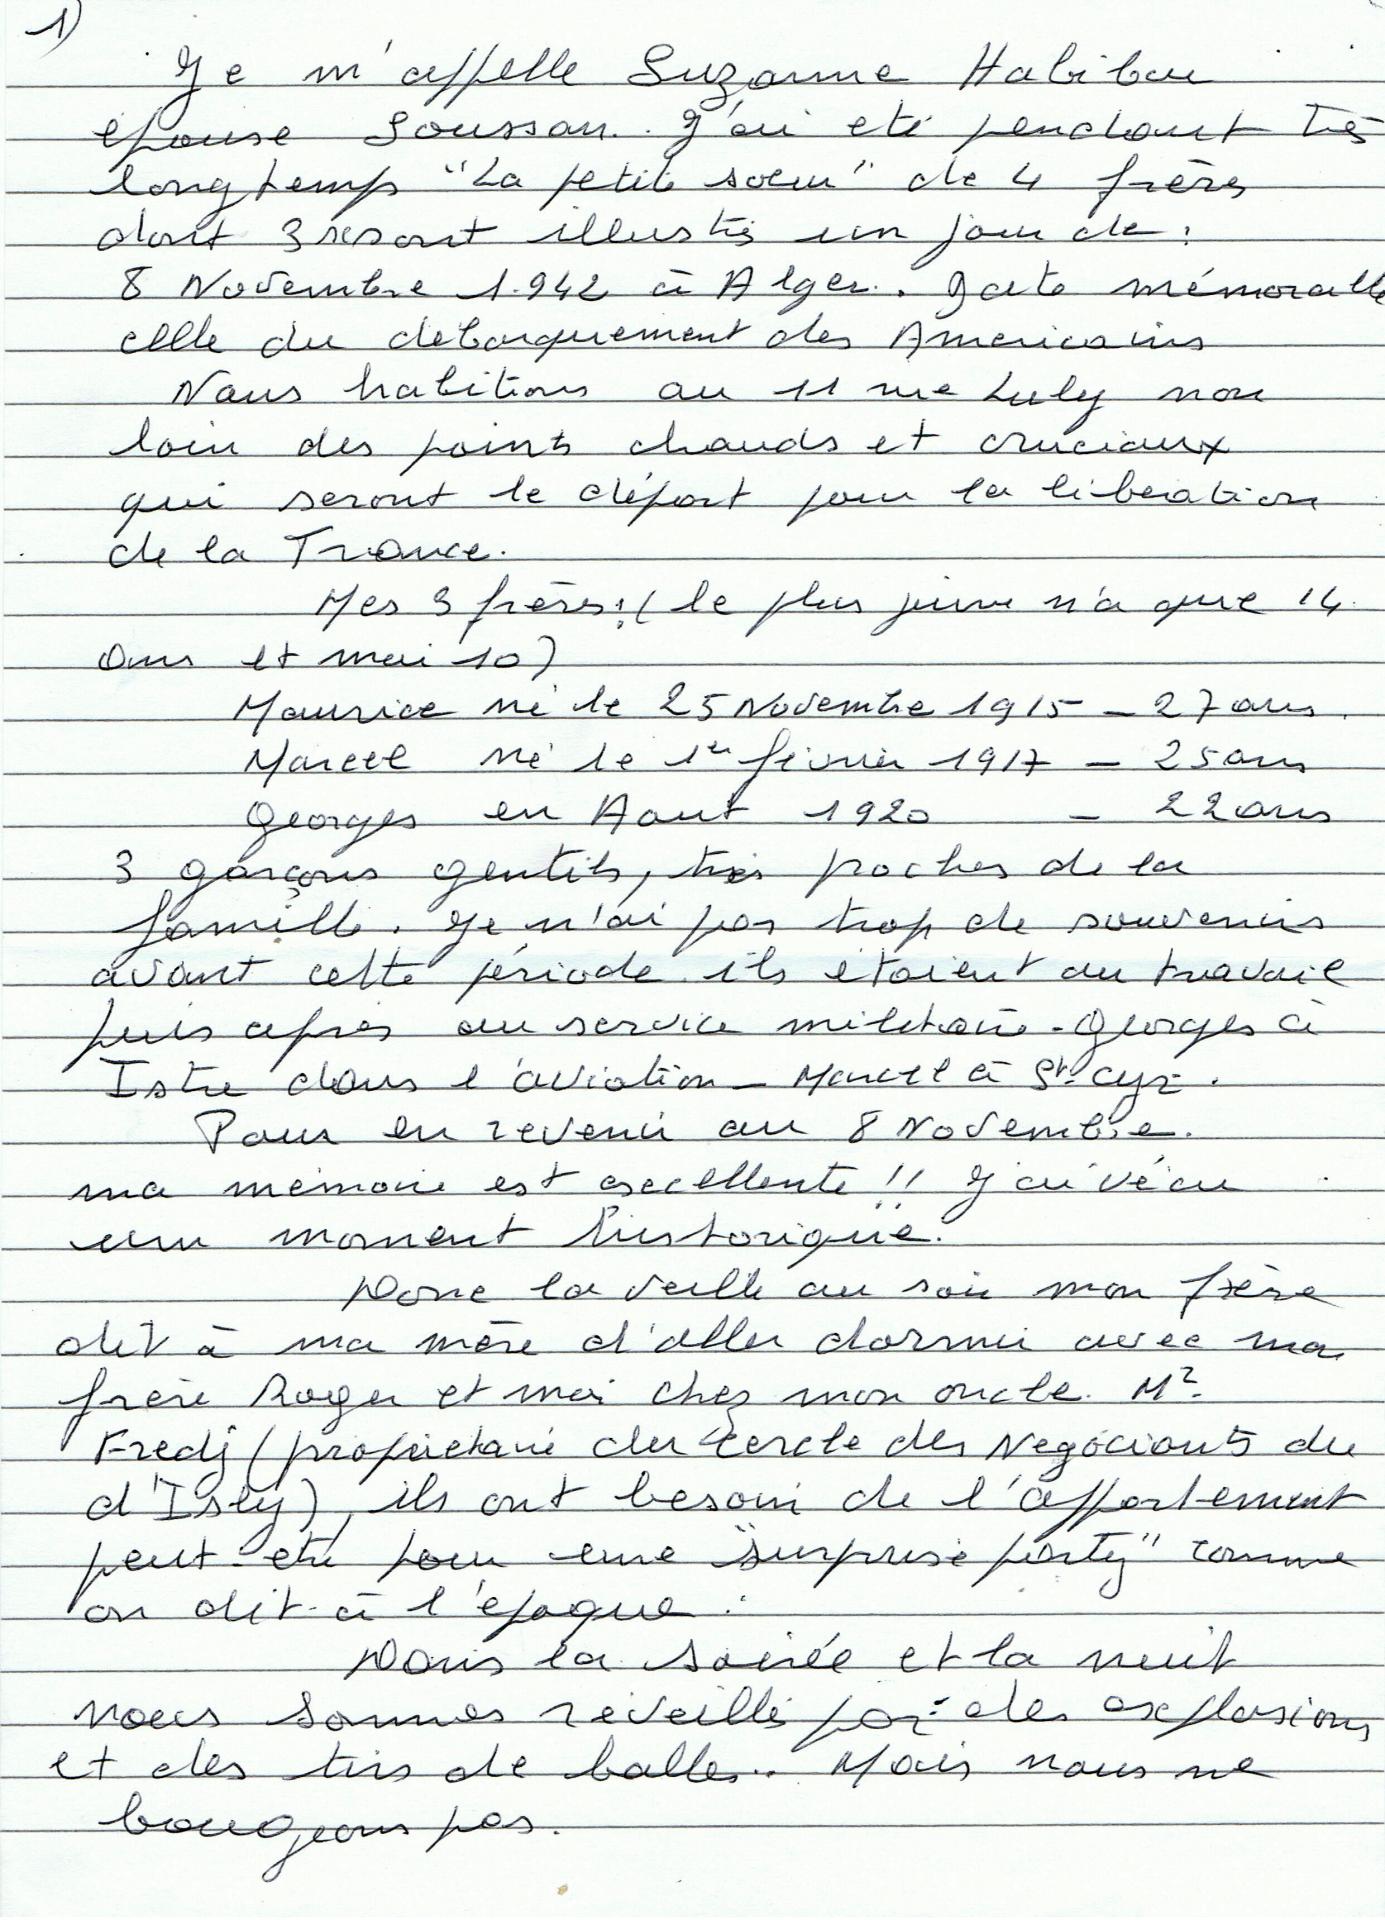 1)
Je m'appelle Suzanne Habibou
épouse Soussan. J'ai eté pendant très
longtemps "La petite soeur" de 4 frères
dont 3 se sont illustrés un jour de :
8 Novembre 1.942 à Alger. Date mémorable
celle du debarquement des Americains
Nous habitions au 11 rue Luly non
loin des points chauds et cruciaux
qui seront le départ pour la liberation
de la France.
Mes 3 frères : ( le plus jeune n'a que 14
ans et moi 10)
Maurice né le 25 Novembre 1915 - 27 ans.
Marcel né le 1er février 1917 - 25 ans
Georges en Aout 1920 - 22 ans
3 garçons gentils, très proches de la
famille. Je n'ai pas trop de souvenirs
avant cette période ils étaient au travail
puis après au service militaire - Georges à
Istre dans l'aviation - Marcel à St. Cyr.
Pour en revenir au 8 Novembre.
ma mémoire est excellente !! J'ai vécu
un moment historique.
Donc la veille au soir mon frère
dit à ma mère d'aller dormir avec mon
frère Roger et moi chez mon oncle. Mr.
Fredj (propriétaire du Cercle des Negociants du
d'Isly), ils ont besoin de l'appartement
peut-etre pour une "surprise party" comme
on dit à l'epoque.
Dans la soirée et la nuit
nous sommes réveillés par des explosions
et des tirs de balles.. Mais nous ne
bougeons pas.